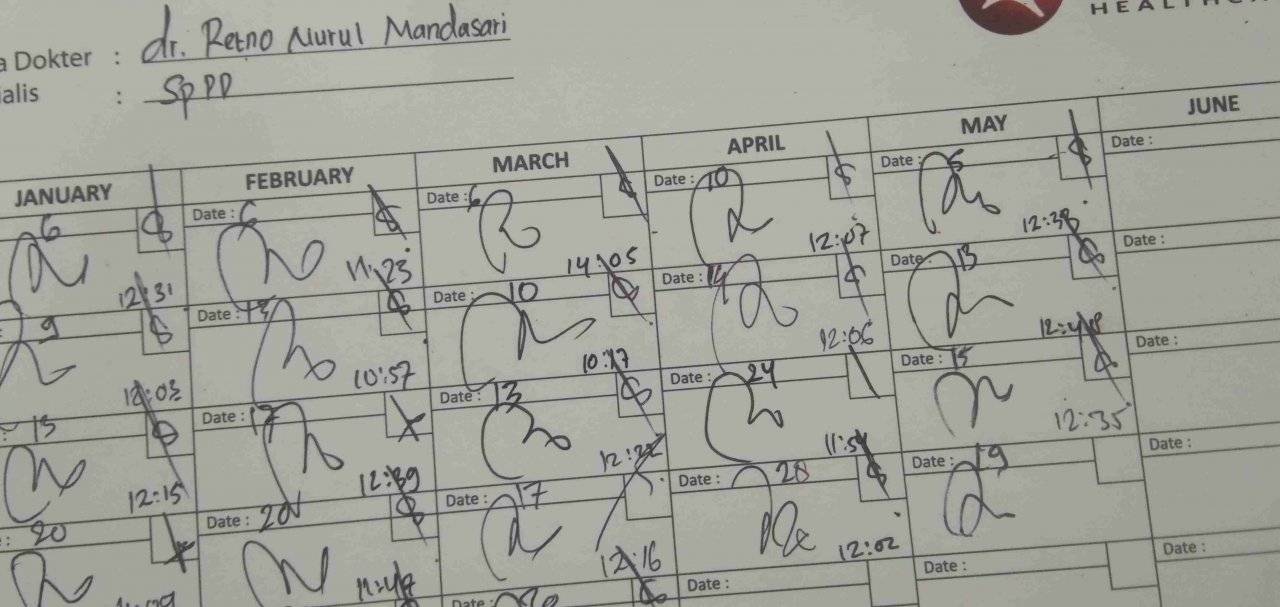 HEALTHC
a Dokter : dr. Retno Nurul Mandasari
ialis : SpPD
JANUARY FEBRUARY MARCH APRIL MAY JUNE
6 Date : 6 Date : 6 Date : 10 Date : 6 Date :
12:31 11:23 14:05 12:07 12:38
9 Date : 13 Date : 10 Date : 14 Date : 13 Date :
12:03 10:57 10:17 12:06 12:48
13 Date : 17 Date : 13 Date : 24 Date : 15 Date :
12:15 12:39 12:22 11:54 12:35
: 20 Date : 20 Date : 17 Date : 28 Date : 19 Date :
11:47 12:16 12:02
Date : Date : Date : Date :